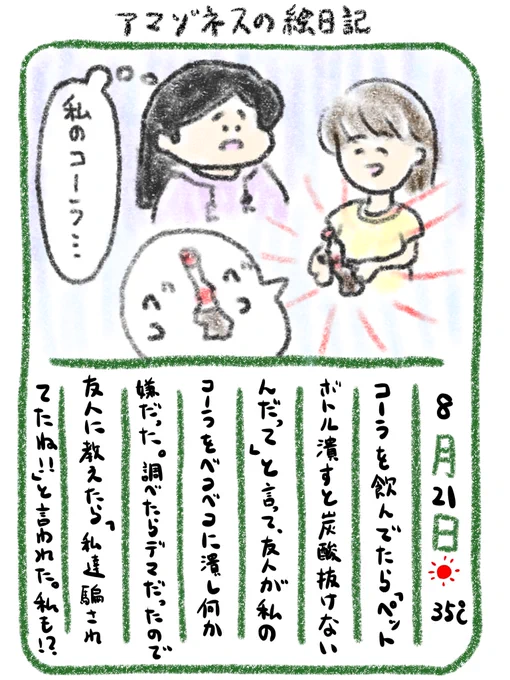 アマゾネスの絵日記
私のコーラ…
ベコ
ベコ
8月21日 35℃
コーラを飲んでたら「ペット
ボトル潰すと炭酸抜けない
んだって」と言って、友人が私の
コーラをベコベコに潰し何か
嫌だった。調べたらデマだったので
友人に教えたら「私達騙され
てたね!!」と言われた。私も!?